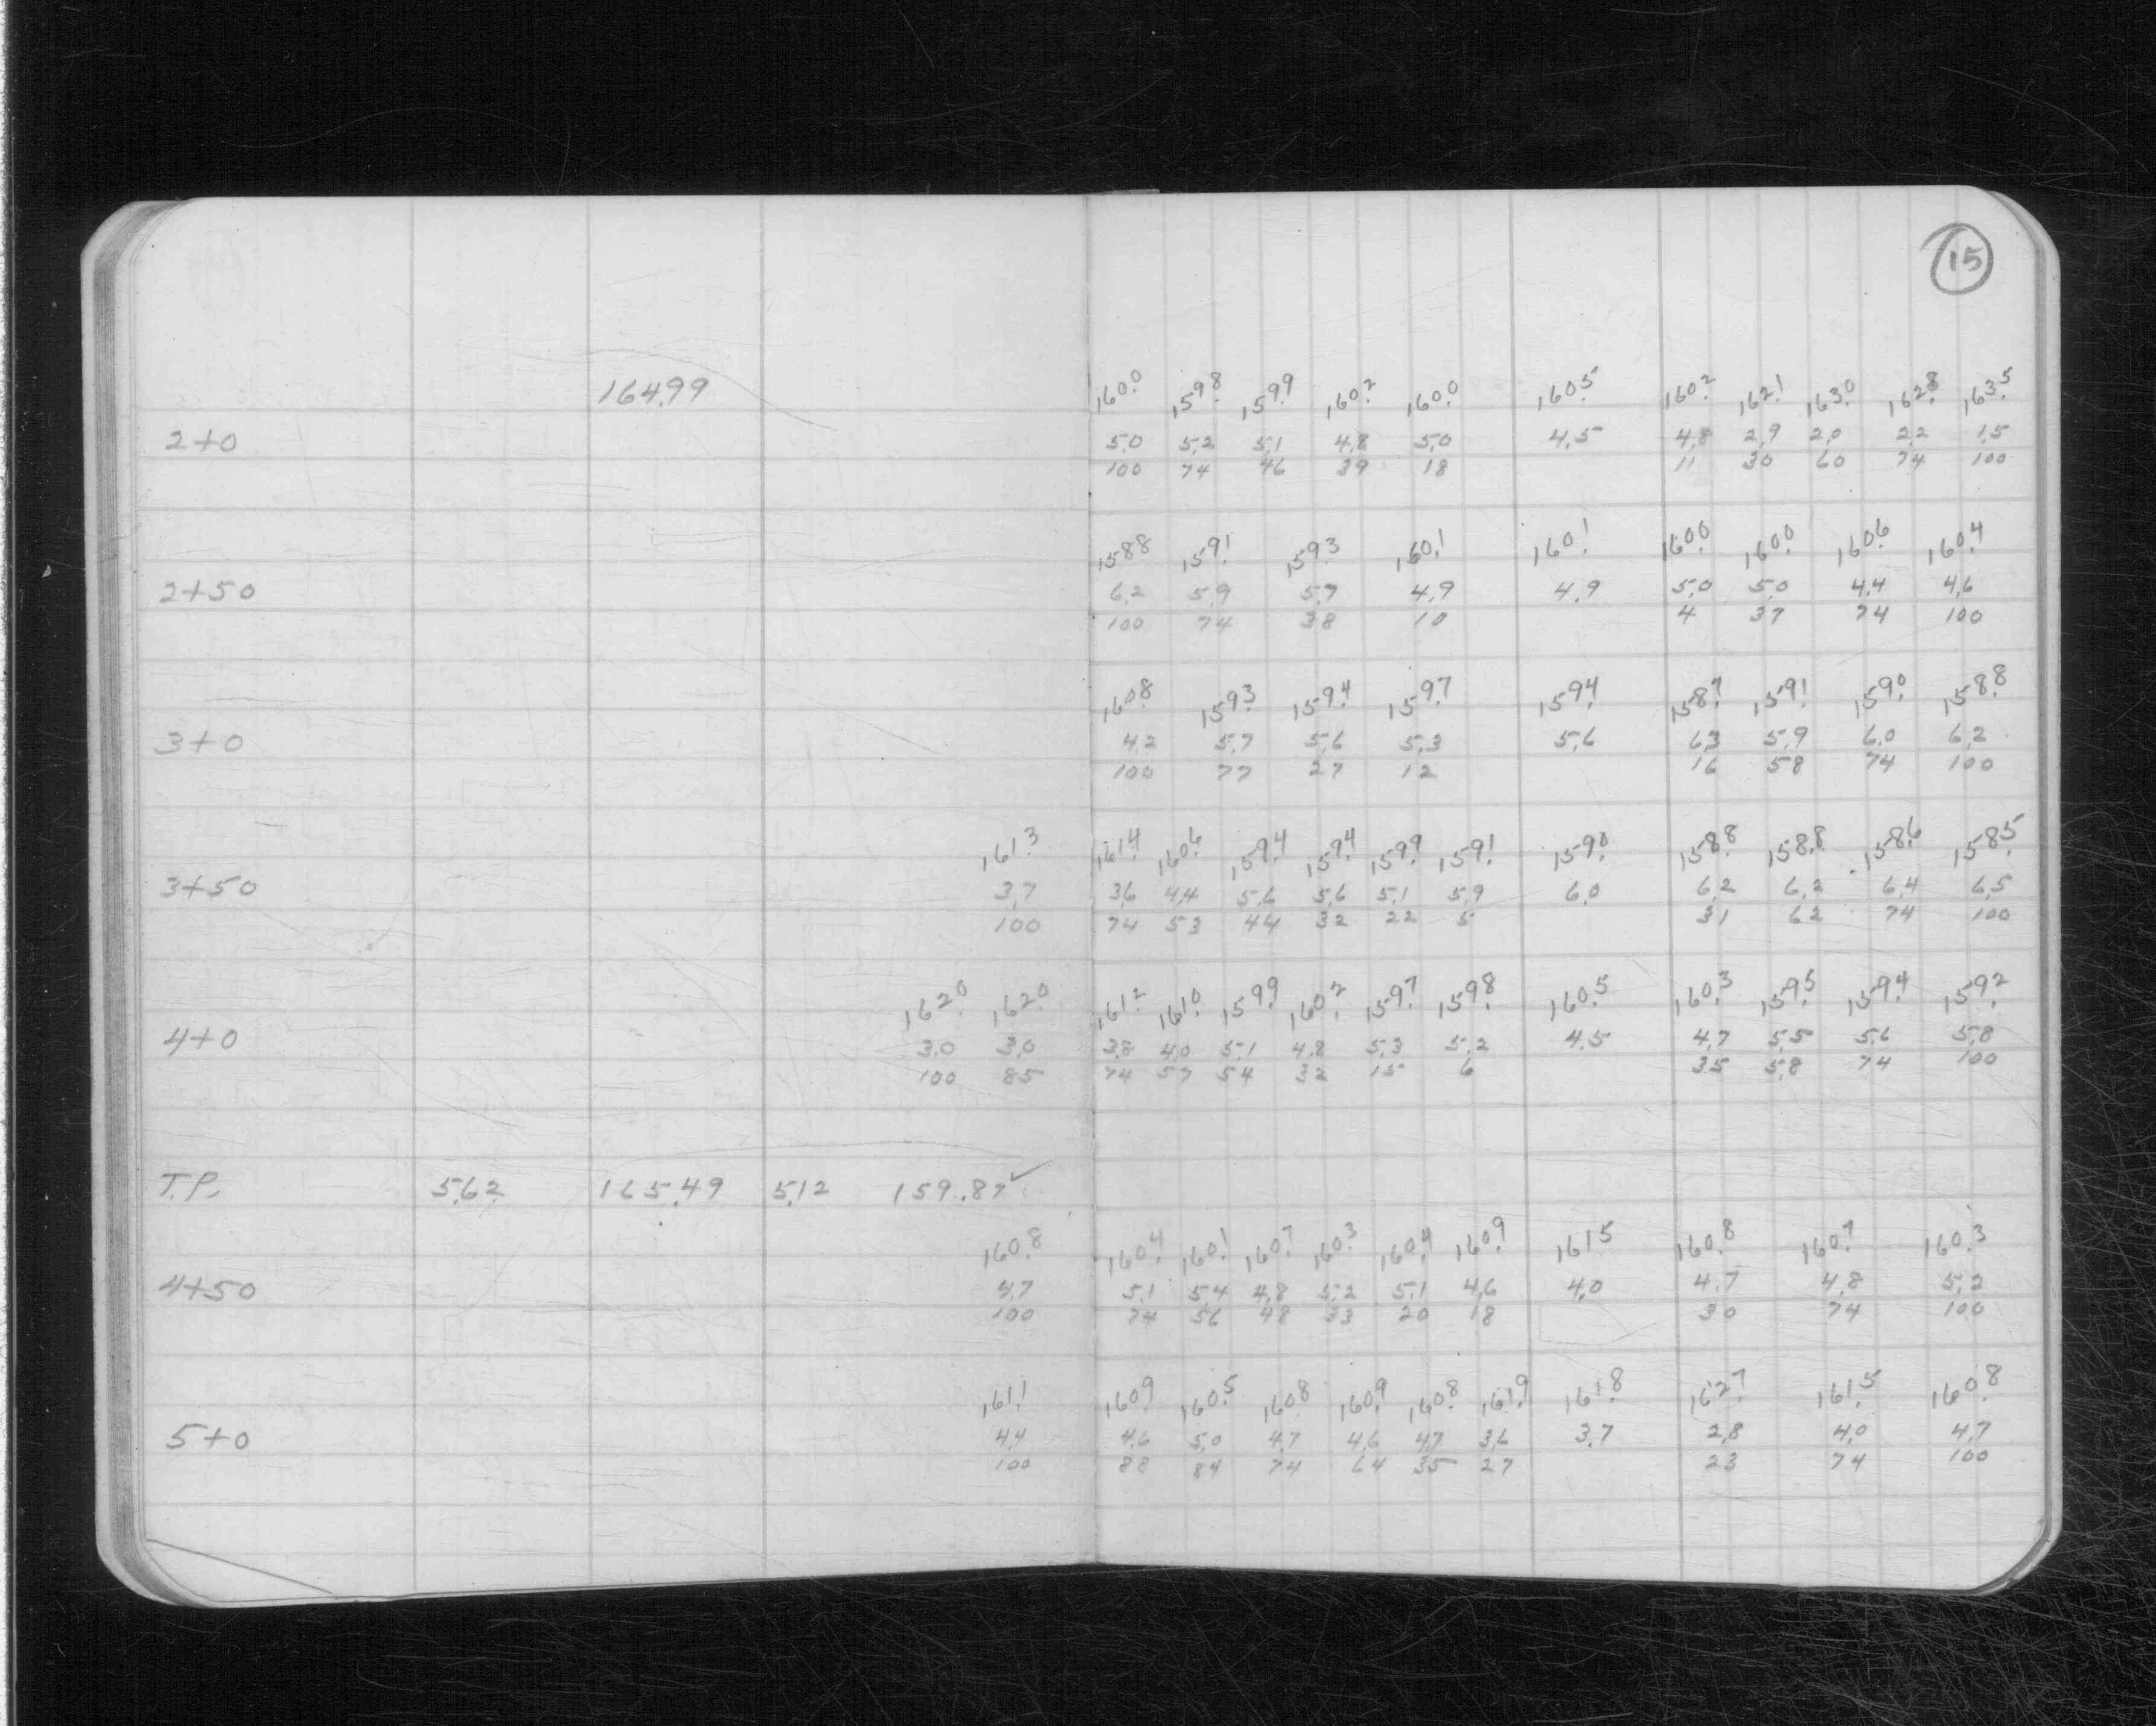 15
164.99
160.0 159.8 159.9 160.2 160.0 160.5 160.2 162.1 163.0 162.8 163.5
2+0 5.0 5.2 5.1 4.8 5.0 4.5 4.8 2.9 2.0 2.2 1.5
100 74 46 39 18 11 30 60 74 100
158.8 159.1 159.3 160.1 160.1 160.0 160.0 160.6 160.4
2+50 6.2 5.9 5.7 4.9 4.9 5.0 5.0 4.4 4.6
100 74 38 10 4 37 74 100
160.8 159.3 159.4 159.7 159.4 158.7 159.1 159.0 158.8
3+0 4.2 5.7 5.6 5.3 5.6 6.3 5.9 6.0 6.2
100 77 27 12 16 58 74 100
161.3 161.4 160.6 159.4 159.4 159.9 159.1 159.0 158.8 158.8 158.6 158.5
3+50 3.7 3.6 4.4 5.6 5.6 5.1 5.9 6.0 6.2 6.2 6.4 6.5
100 74 53 44 32 22 5 31 62 74 100
162.0 162.0 161.2 161.0 159.9 160.2 159.7 159.8 160.5 160.3 159.5 159.4 159.2
4+0 3.0 3.0 3.8 4.0 5.1 4.8 5.3 5.2 4.5 4.7 5.5 5.6 5.8
100 85 74 57 54 32 15 6 35 58 74 100
T.P. 5.62 165.49 5.12 159.87 ✓
160.8 160.4 160.1 160.7 160.3 160.4 160.9 161.5 160.8 160.7 160.3
4+50 4.7 5.1 5.4 4.8 5.2 5.1 4.6 4.0 4.7 4.8 5.2
100 74 56 48 33 20 18 30 74 100
161.1 160.9 160.5 160.8 160.9 160.8 161.9 161.8 162.7 161.5 160.8
5+0 4.4 4.6 5.0 4.7 4.6 4.7 3.6 3.7 2.8 4.0 4.7
100 88 84 74 64 35 27 23 74 100